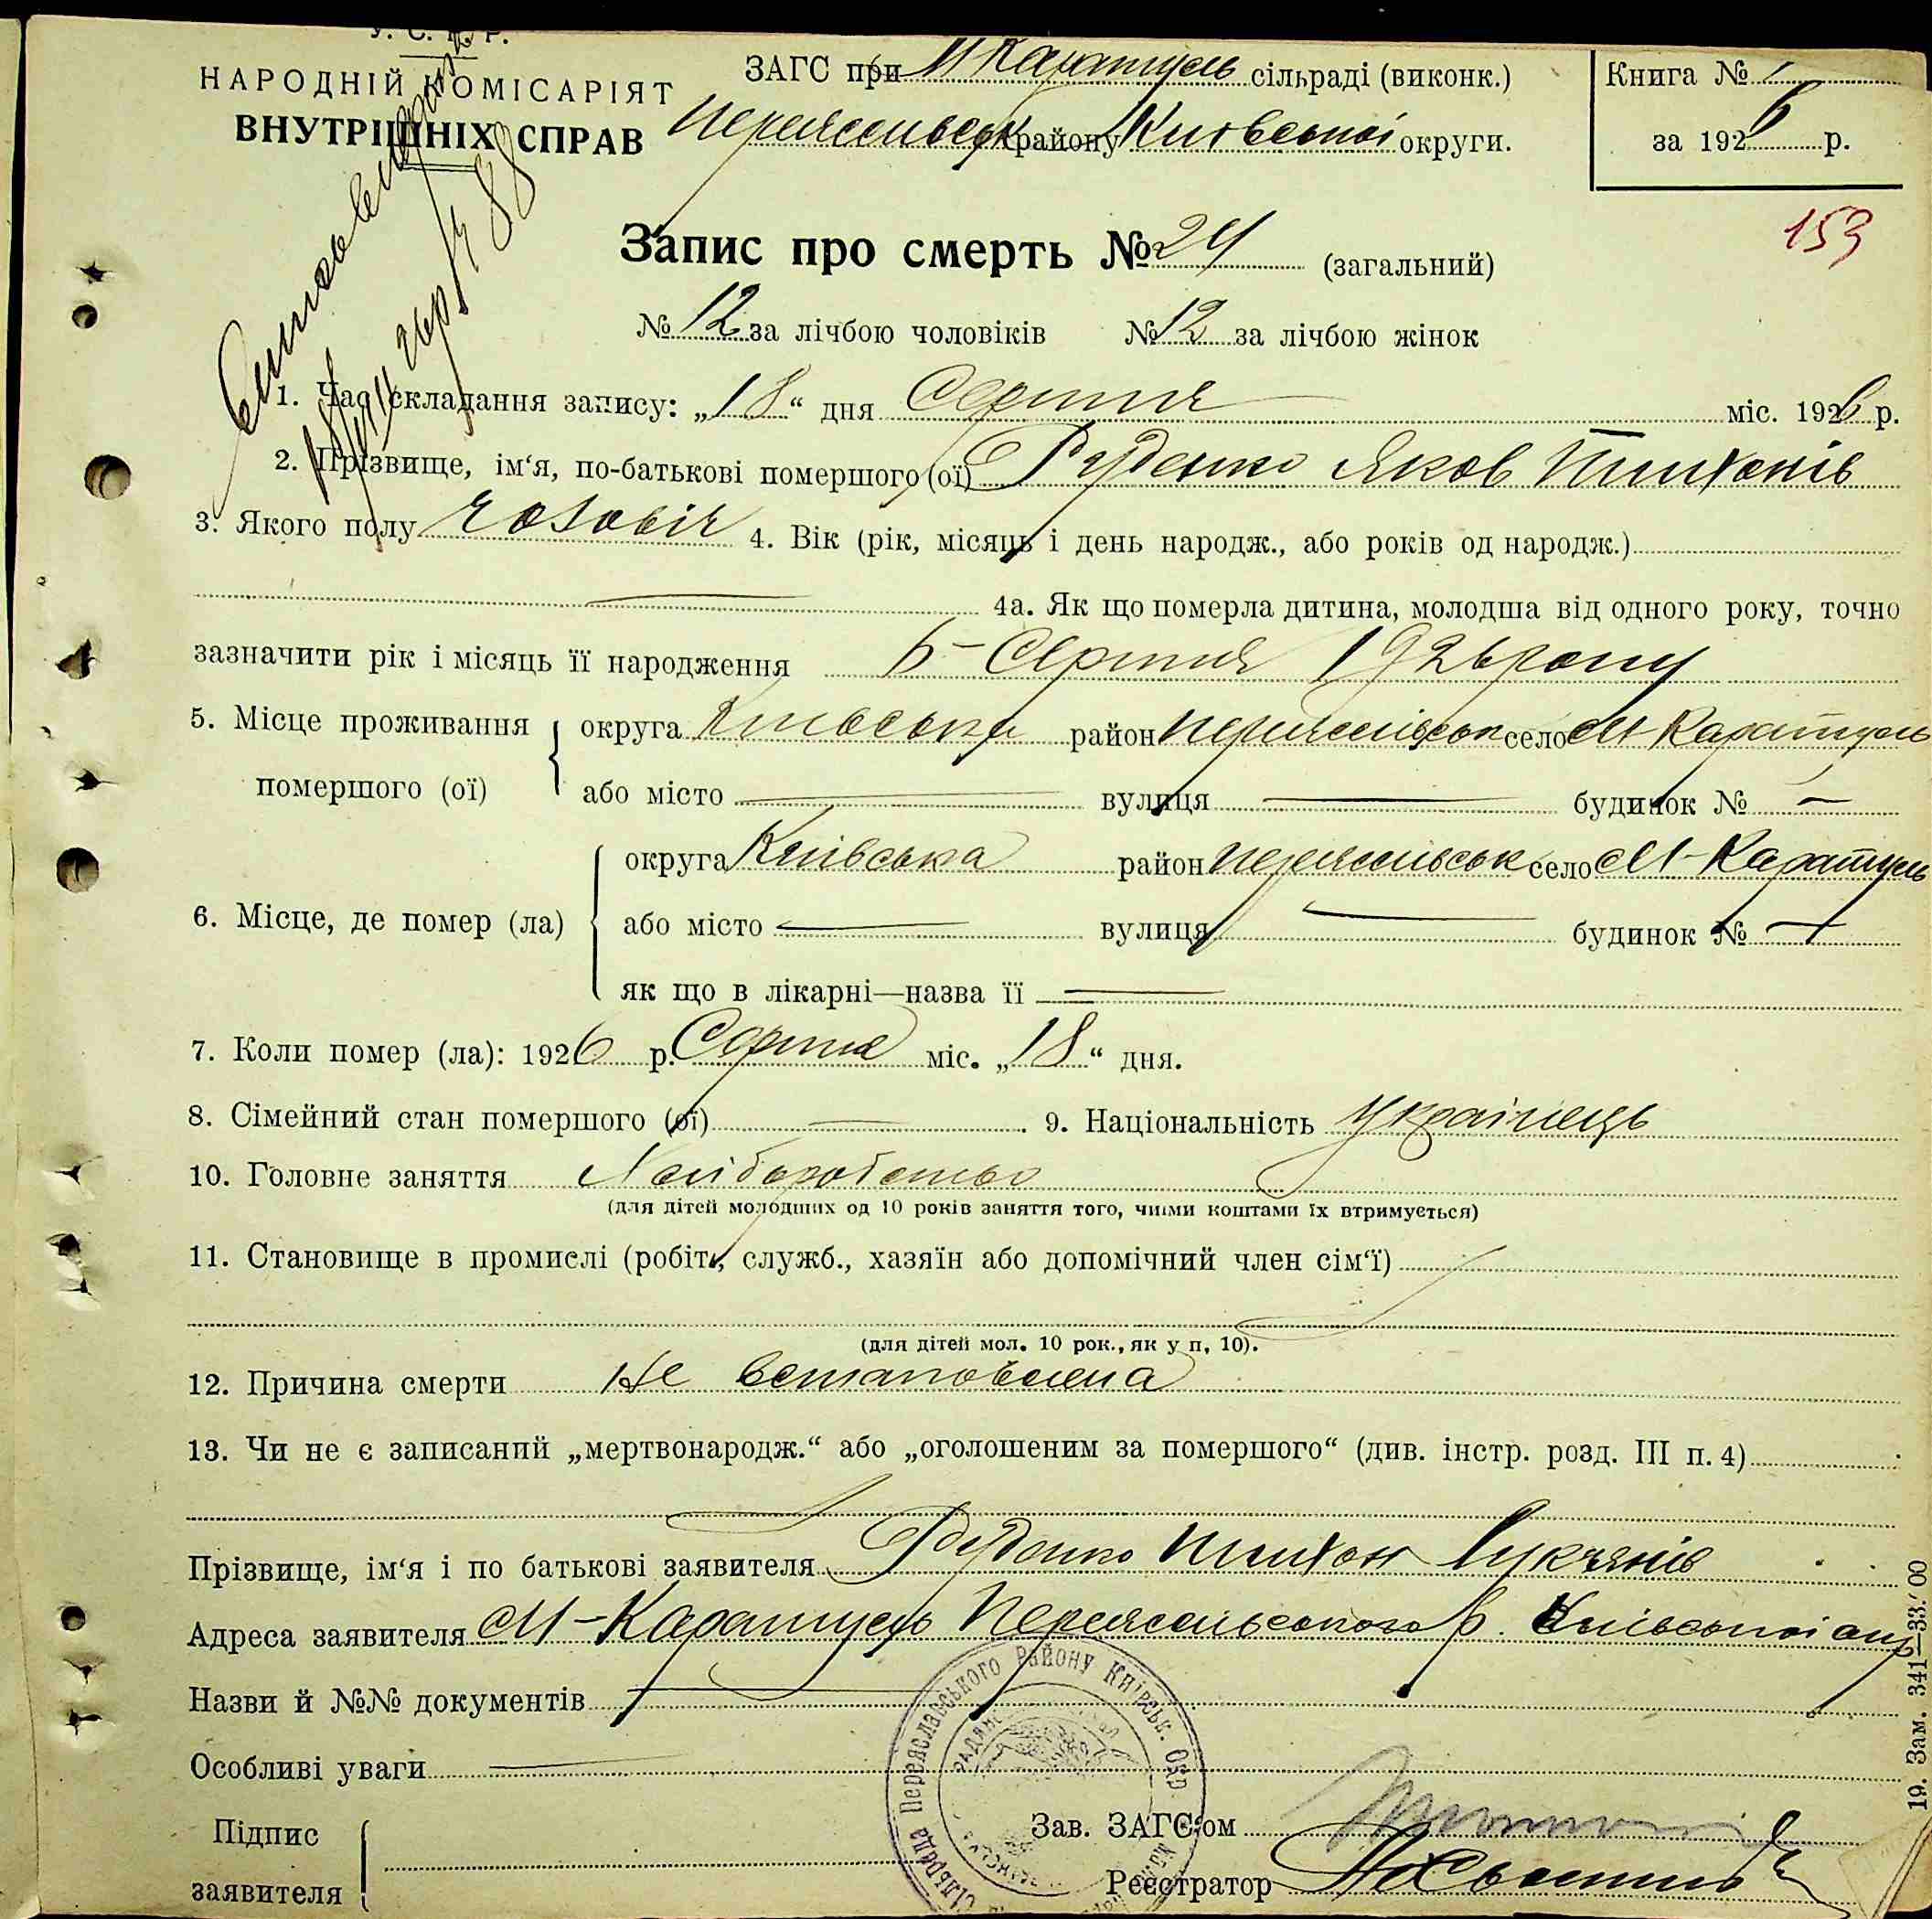 У. С. Р. Р.
НАРОДНІЙ КОМІСАРІЯТ
ВНУТРІШНІХ СПРАВ
ЗАГС при М Каратуль сільраді (виконк.)
району Київської округи.
Книга № 1
за 1926 р.
153
Запис про смерть № 24 (загальний)
№ 12 за лічбою чоловіків № 12 за лічбою жінок
1. Час складання запису: „18“ дня Серпня міс. 1926 р.
2. Прізвище, ім‘я, по-батькові помершого (ої) Руденко Яков Тихонів
3. Якого полу чоловіч 4. Вік (рік, місяць і день народж., або років од народж.)
— 4а. Як що померла дитина, молодша від одного року, точно
зазначити рік і місяць її народження 6 - Серпня 1926 року
5. Місце проживання помершого (ої) округа Київська район село М Каратуль
або місто — вулиця — будинок № —
6. Місце, де помер (ла) округа Київська район село М-Каратуль
або місто — вулиця — будинок № —
як що в лікарні—назва її —
7. Коли помер (ла): 1926 р. Серпня міс. „18“ дня.
8. Сімейний стан помершого (ої) — . 9. Національність Українець
10. Головне заняття
(для дітей молодших од 10 років заняття того, чиїми коштами їх втримується)
11. Становище в промислі (робітн., служб., хазяїн або допомічний член сім‘ї)
(для дітей мол. 10 рок., як у п. 10).
12. Причина смерти Не встановлена
13. Чи не є записаний „мертвонародж.“ або „оголошеним за помершого“ (див. інстр. розд. III п. 4)
Прізвище, ім‘я і по батькові заявителя Руденко Тихон Лукянів
Адреса заявителя М-Каратуль Переяславського р. Київської окр
Назви й №№ документів —
Особливі уваги —
Підпис заявителя
Зав. ЗАГС‘ом
Реєстратор
сільрада Переяславського району Київськ. Окр.
19. Зам. 341—33.000